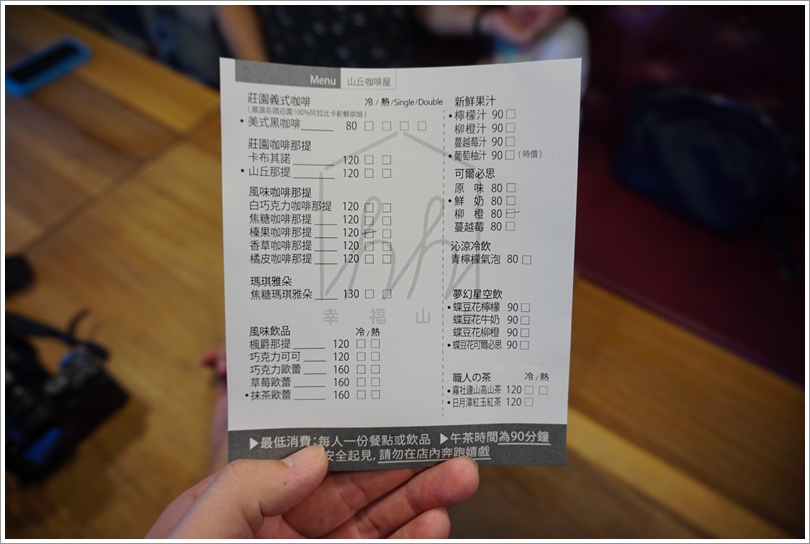 Menu 山丘咖啡屋
莊園義式咖啡 冷/熱/Single/Double
(嚴選各國莊園100%阿拉比卡新鮮烘焙)
•美式黑咖啡 80 □ □ □ □
莊園咖啡那提
卡布其諾 120 □ □
•山丘那提 120 □ □
風味咖啡那提
白巧克力咖啡那提 120 □ □
焦糖咖啡那提 120 □ □
榛果咖啡那提 120 □ □
香草咖啡那提 120 □ □
橘皮咖啡那提 120 □ □
瑪琪雅朵
焦糖瑪琪雅朵 130 □ □
幸福山
風味飲品 冷/熱
楓爵那提 120 □ □
巧克力可可 120 □ □
巧克力歐蕾 160 □ □
草莓歐蕾 160 □ □
•抹茶歐蕾 160 □ □
新鮮果汁
•檸檬汁 90 □
柳橙汁 90 □
蔓越莓汁 90 □
•葡萄柚汁 90 □ (時價)
可爾必思
原味 80 □
•鮮奶 80 □
柳橙 80 □
蔓越莓 80 □
沁涼冷飲
青檸檬氣泡 80 □
夢幻星空飲
•蝶豆花檸檬 90 □
蝶豆花牛奶 90 □
蝶豆花柳橙 90 □
•蝶豆花可爾必思 90 □
職人の茶 冷/熱
•霧社廬山高山茶 120 □ □
•日月潭紅玉紅茶 120 □
▶最低消費:每人一份餐點或飲品 ▶午茶時間為90分鐘
安全起見,請勿在店內奔跑嬉戲